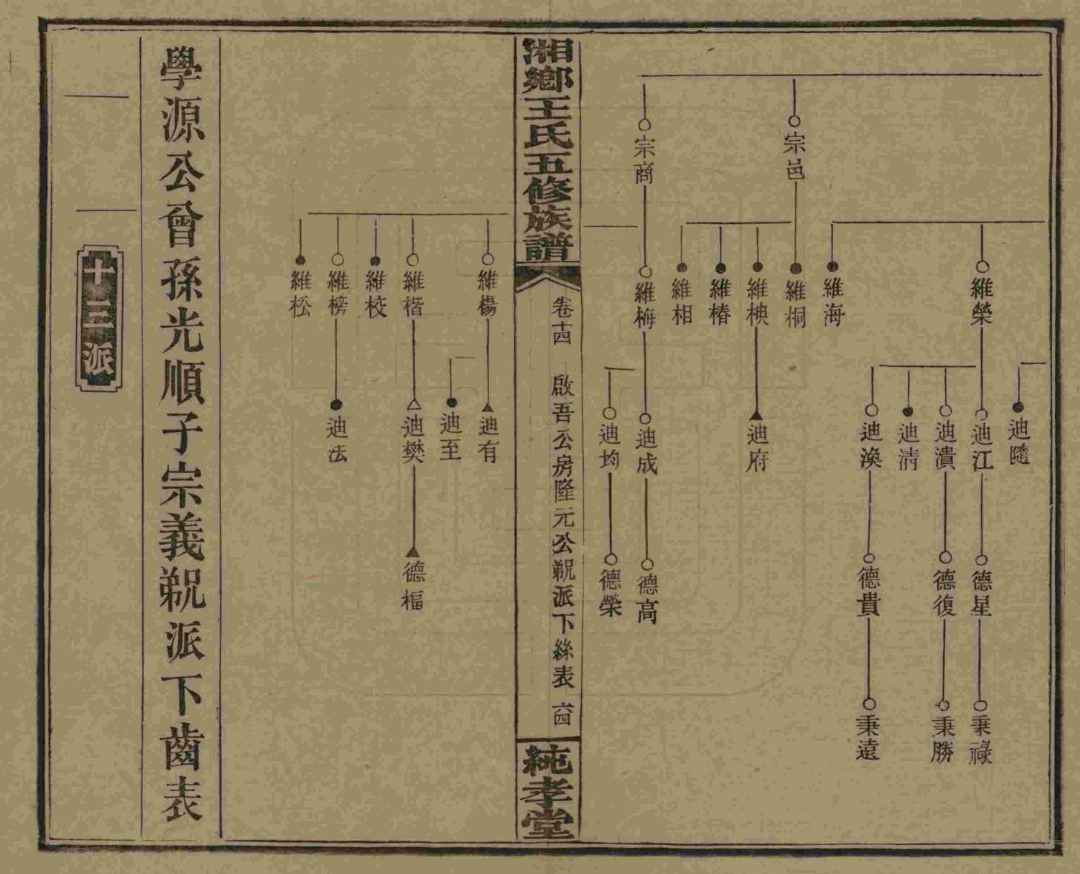 宗邑
宗商
維榮
維海
維桐
維楧
維椿
維相
維梅
迪隨
迪江
迪濆
迪清
迪渙
迪府
迪成
迪均
德星
德復
德貴
德高
德榮
秉祿
秉勝
秉遠
湘鄉王氏五修族譜
卷十四
啟吾公房隆元公䞉派下絲表
六四
純孝堂
維楊
維楷
維校
維榜
維松
迪有
迪至
迪樊
迪法
德楅
學源公曾孫光順子宗義派下齒表
十三派